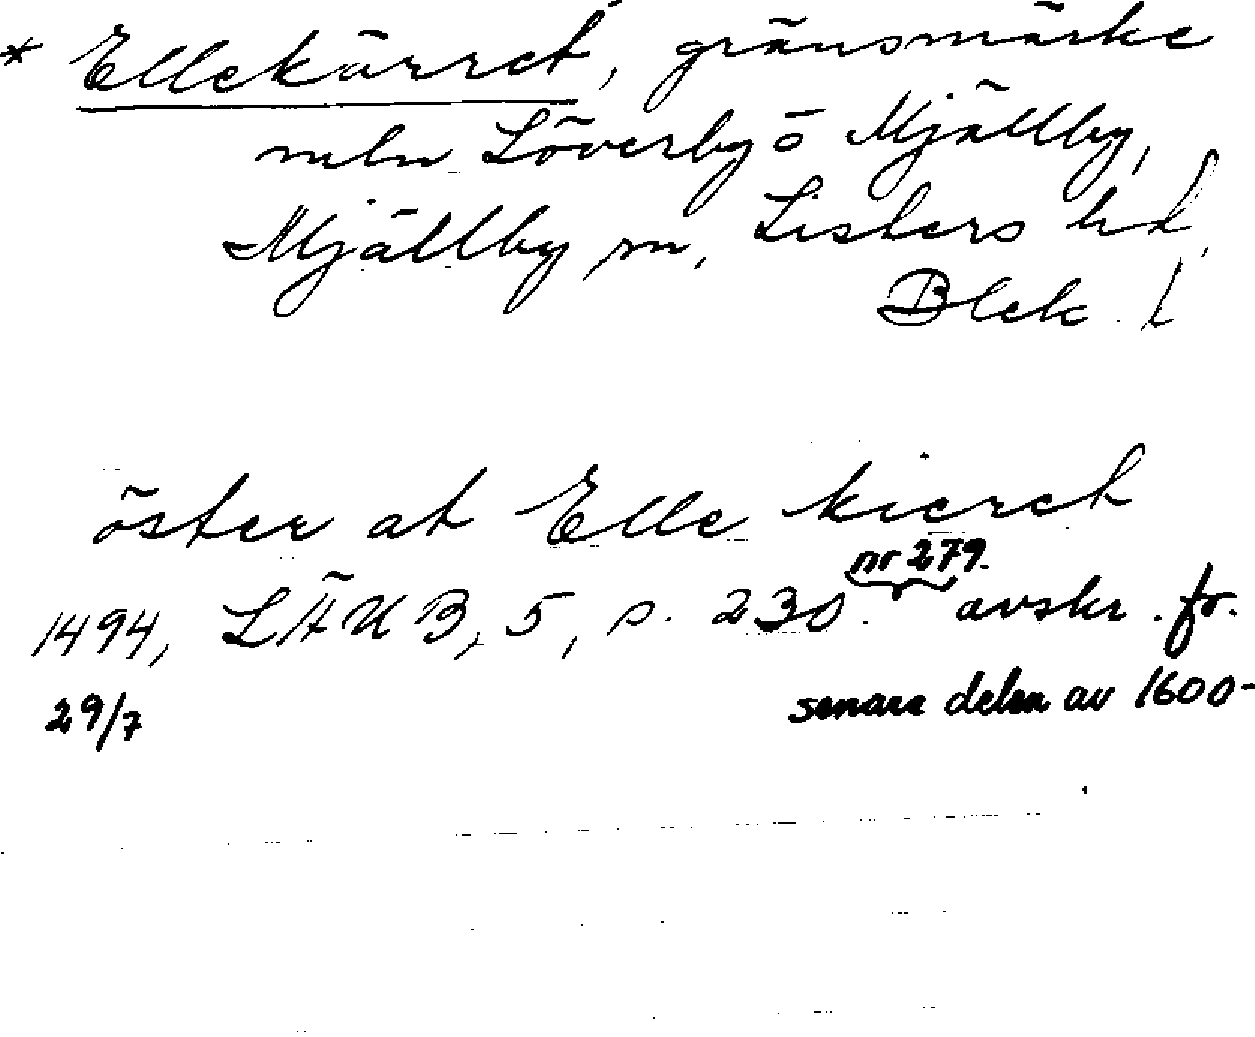 * Ellekärret, gränsmärke
mln Löverby o Mjällby,
Mjällby sn, Listers hd,
Blek. l
öster at Elle kieret
nr 279.
1494, LÄUB, 5, s. 230. avskr. fr.
29/7 senare delen av 1600-